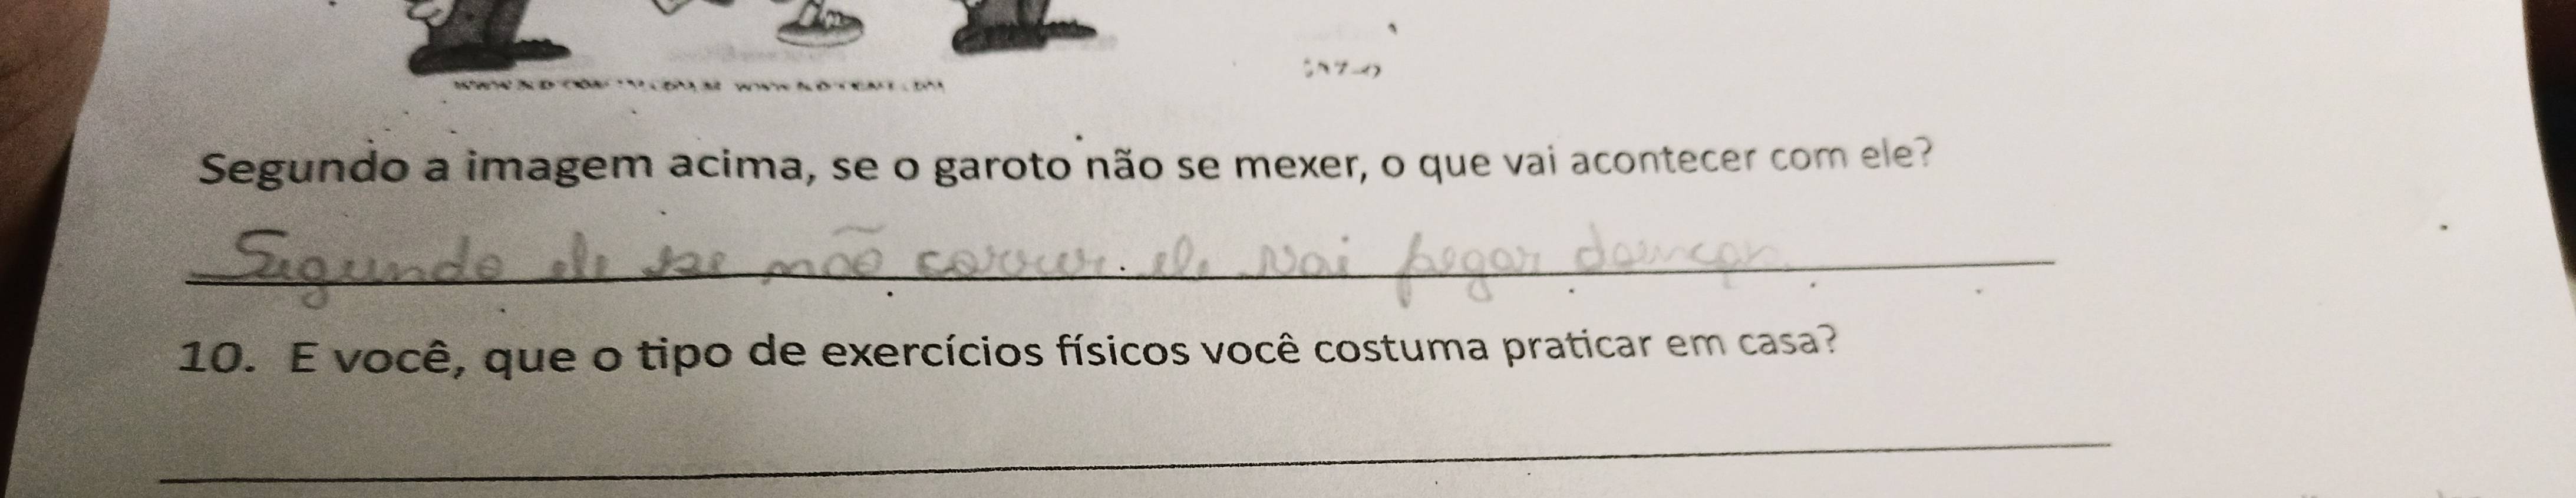 Segundo a imagem acima, se o garoto não se mexer, o que vai acontecer com ele?
Segundo ele se não correr ele vai pegar
10. E você, que o tipo de exercícios físicos você costuma praticar em casa?